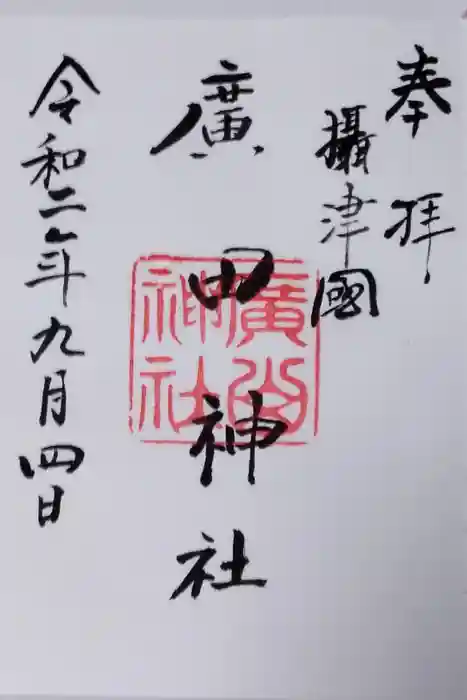 奉拝
攝津國
廣田神社
令和二年九月四日
廣
神社